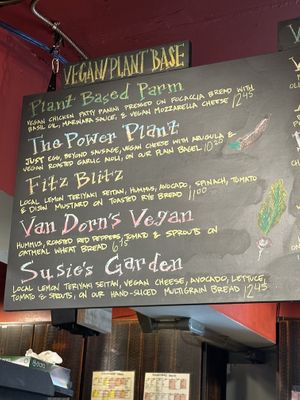 VEGAN/PLANT BASE
Plant Based Parm
VEGAN CHICKEN PATTY PANINI PRESSED ON FOCACCIA BREAD WITH
BASIL OIL, MARINARA SAUCE, & VEGAN MOZZARELLA CHEESE 12.45
The Power Plant
JUST EGG, BEYOND SAUSAGE, VEGAN CHEESE WITH ARUGULA &
VEGAN ROASTED GARLIC AIOLI, ON OUR PLAIN BAGEL 10.20
Fitz Blitz
LOCAL LEMON TERIYAKI SEITAN, HUMMUS, AVOCADO, SPINACH, TOMATO
& DIJON MUSTARD ON TOASTED RYE BREAD 11.00
Van Dorn's Vegan
HUMMUS, ROASTED RED PEPPERS, TOMATO & SPROUTS ON
OATMEAL WHEAT BREAD 6.75
Susie's Garden
LOCAL LEMON TERIYAKI SEITAN, VEGAN CHEESE, AVOCADO, LETTUCE,
TOMATO & SPROUTS, ON OUR HAND-SLICED MULTIGRAIN BREAD 12.45